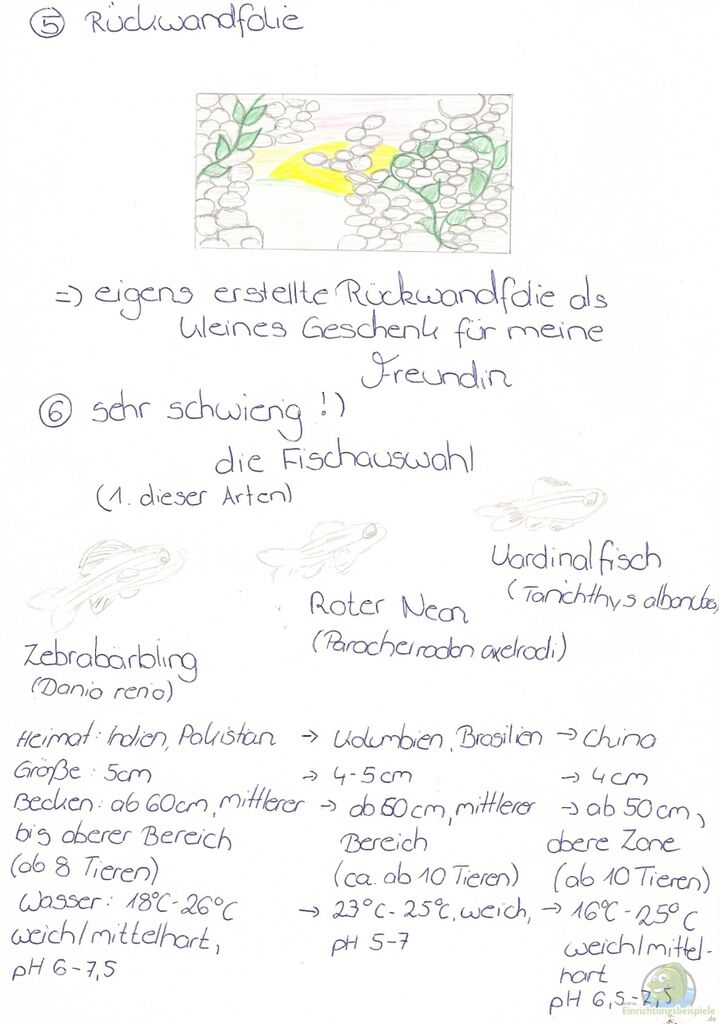 ⑤ Rückwandfolie
=> eigens erstellte Rückwandfolie als
kleines Geschenk für meine
Freundin
⑥ sehr schwierig !)
die Fischauswahl
(1. dieser Arten)
Zebrabärbling
(Danio rerio)
Roter Neon
(Paracheirodon axelrodi)
Kardinalfisch
(Tanichthys albonubes)
Heimat: Indien, Pakistan → Kolumbien, Brasilien → China
Größe: 5cm → 4-5cm → 4cm
Becken: ab 60cm, mittlerer → ab 60cm, mittlerer → ab 50cm,
bis oberer Bereich Bereich obere Zone
(ab 8 Tieren) (ca. ab 10 Tieren) (ab 10 Tieren)
Wasser: 18°C-26°C → 23°C-25°C, weich, → 16°C-25°C
weich/mittelhart, pH 5-7 weich/mittel-
pH 6-7,5 hart
pH 6,5-7,5
www.
Einrichtungsbeispiele
.de